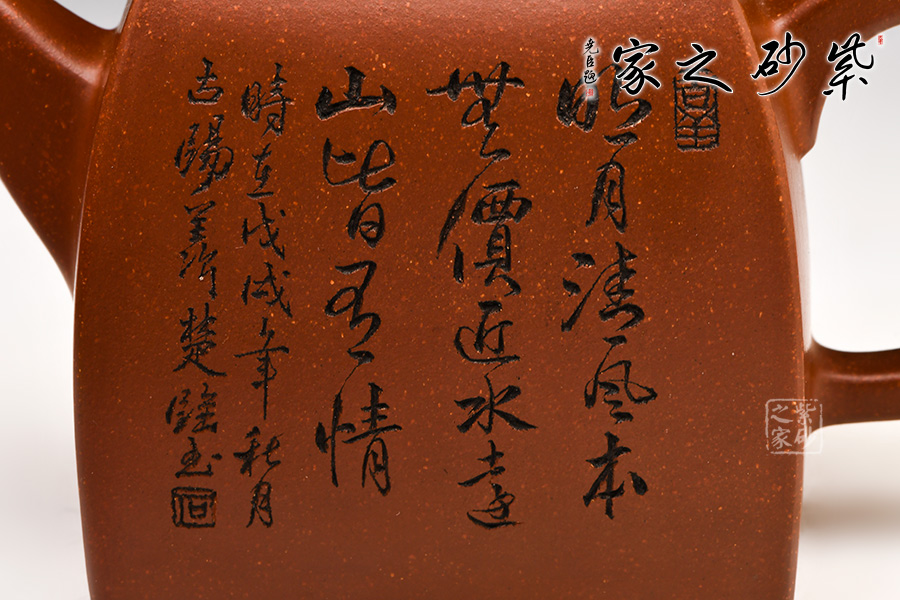 紫砂之家
堯臣題
明月清風本
無價近水遠
山皆有情
時在戊戌年秋月
古陽羨楚
紫砂之家